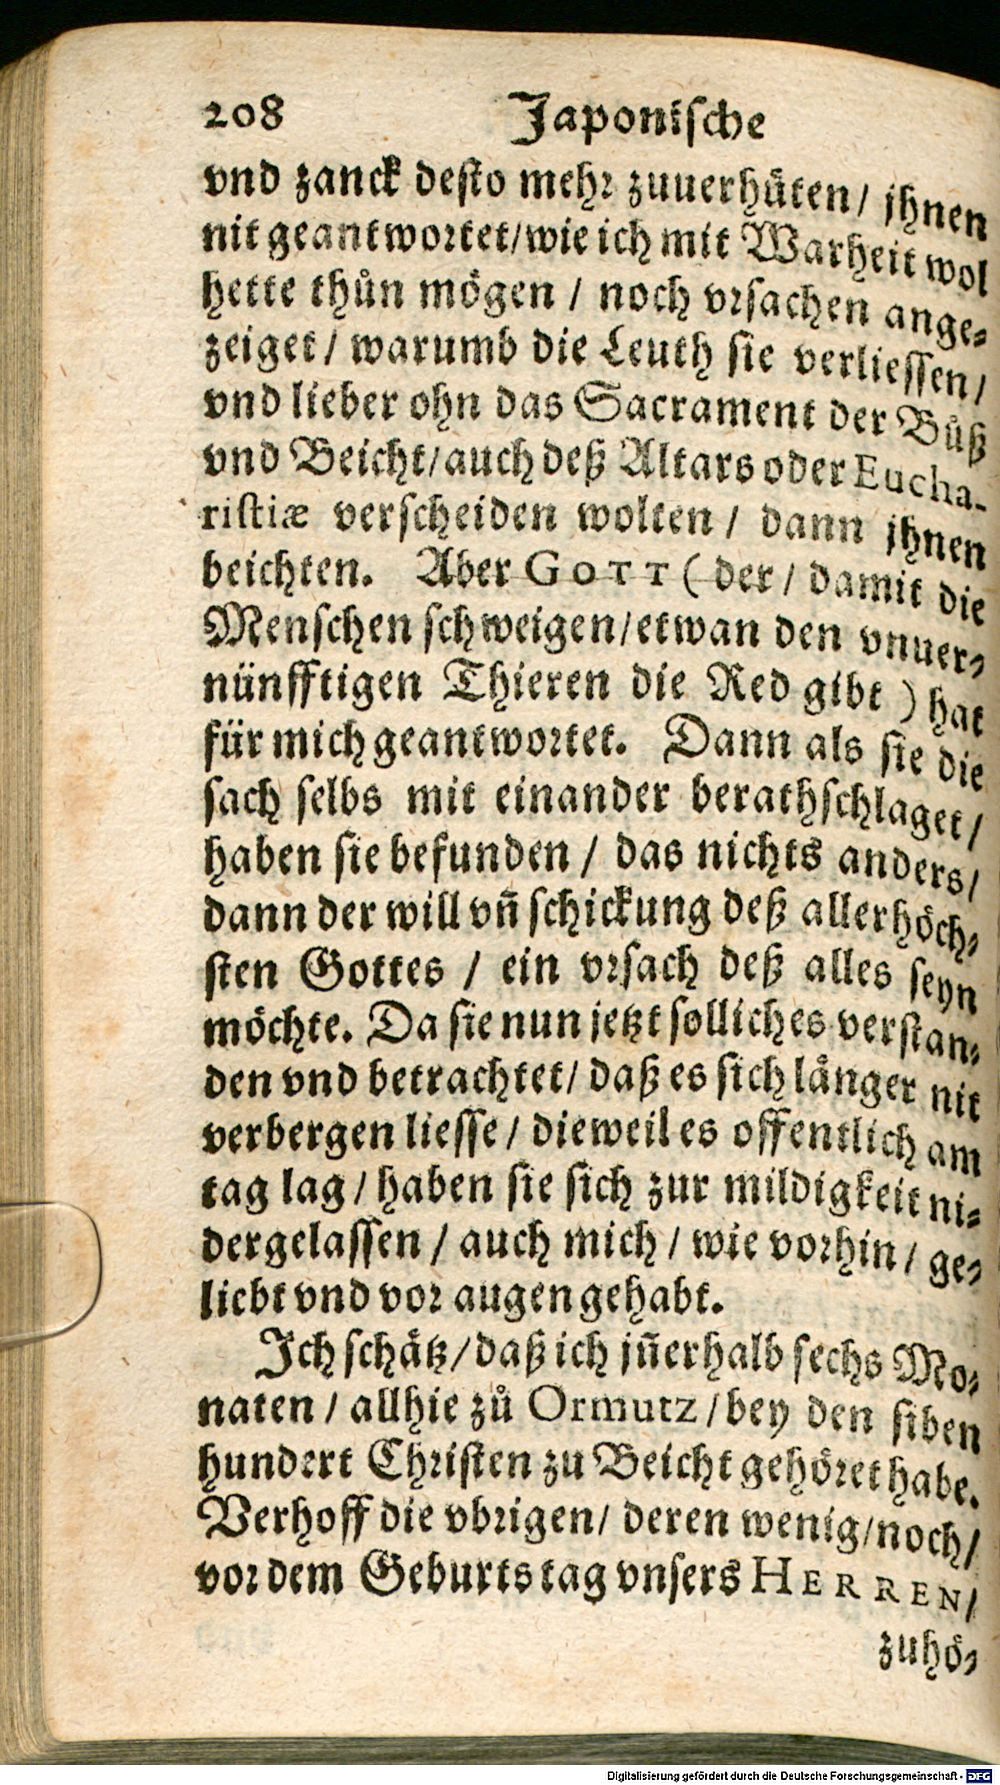 208 Japonische
vnd zanck desto mehr zuuerhüten/ jhnen
nit geantwortet/wie ich mit Warheit wol
hette thůn mögen / noch vrsachen ange-
zeiget/ warumb die Leuth sie verliessen/
vnd lieber ohn das Sacrament der Bůß
vnd Beicht/auch deß Altars oder Eucha-
ristiæ verscheiden wolten/ dann jhnen
beichten. Aber GOTT (der/ damit die
Menschen schweigen/etwan den vnuer-
nünfftigen Thieren die Red gibt) hat
für mich geantwortet. Dann als sie die
sach selbs mit einander berathschlaget/
haben sie befunden / das nichts anders/
dann der will vñ schickung deß allerhöch-
sten Gottes / ein vrsach deß alles seyn
möchte. Da sie nun jetzt solliches verstan-
den vnd betrachtet/ daß es sich länger nit
verbergen liesse/ dieweil es offentlich am
tag lag/ haben sie sich zur mildigkeit ni-
dergelassen/ auch mich/ wie vorhin/ ge-
liebt vnd vor augen gehabt.
Ich schätz/daß ich jñerhalb sechs Mo-
naten/ allhie zů Ormutz/bey den siben
hundert Christen zu Beicht gehöret habe.
Verhoff die vbrigen/ deren wenig/noch/
vor dem Geburts tag vnsers HERREN/
zuhö-
Digitalisierung gefördert durch die Deutsche Forschungsgemeinschaft - DFG